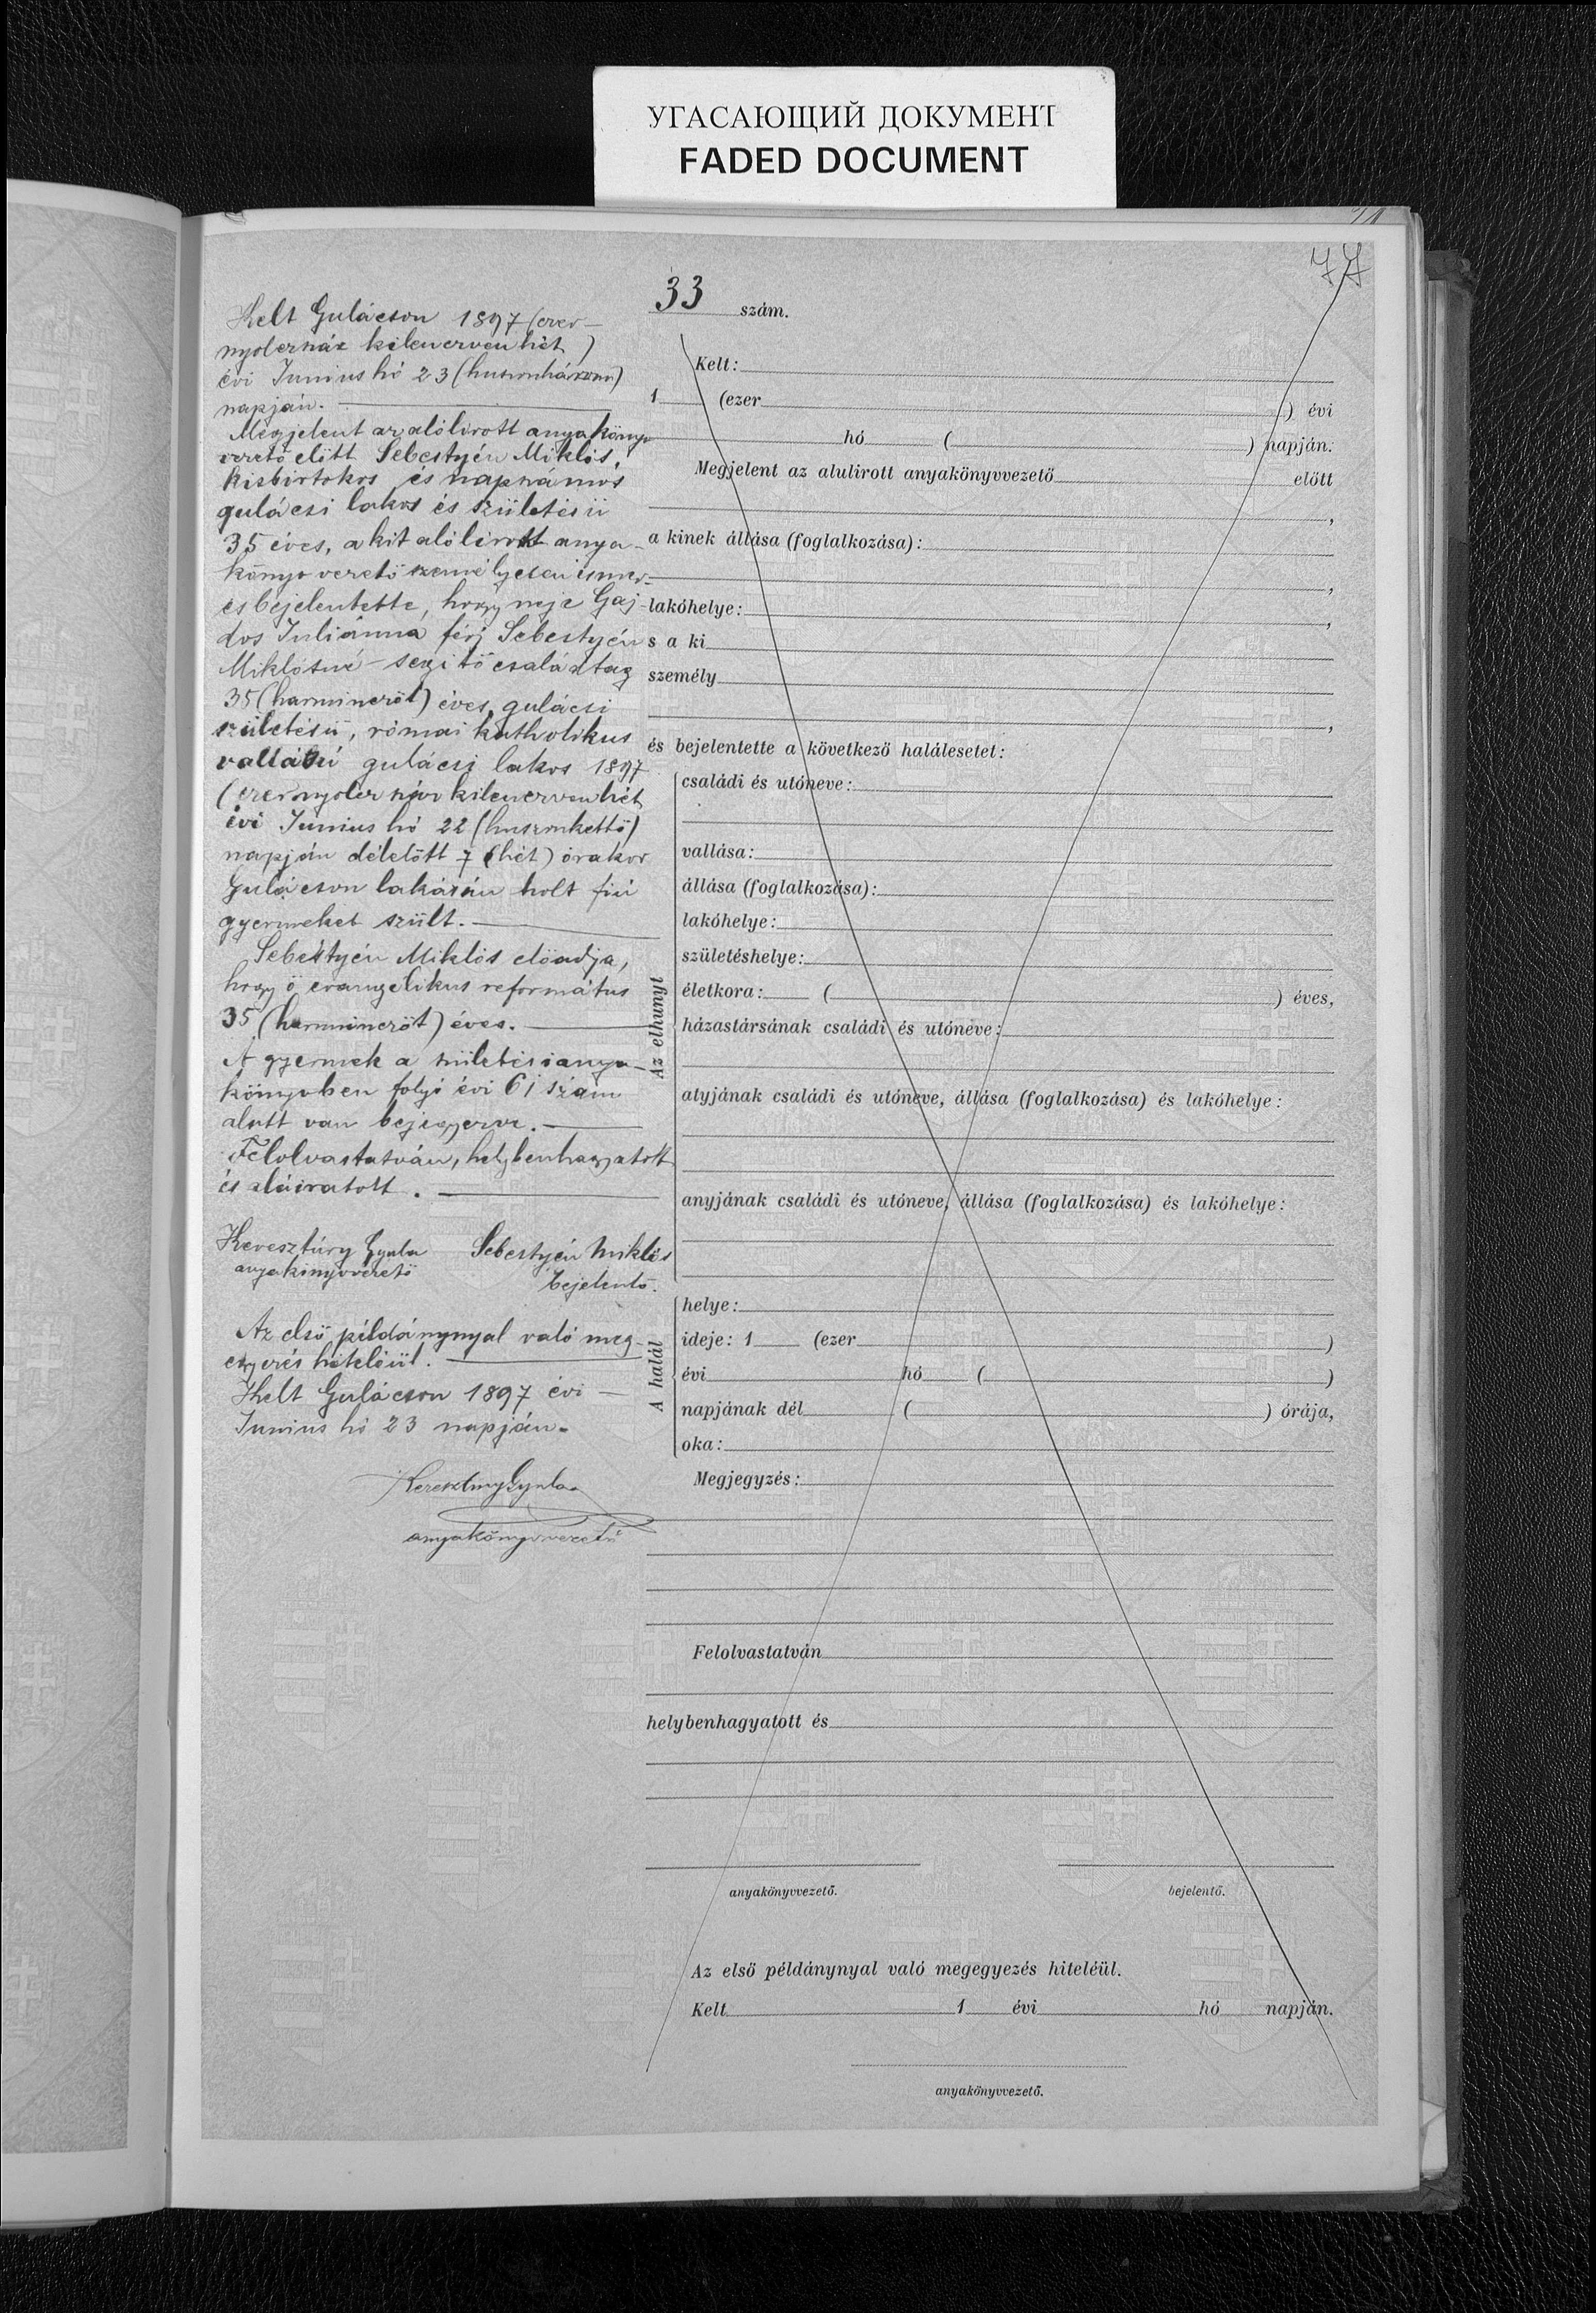 УГАСАЮЩИЙ ДОКУМЕНТ
FADED DOCUMENT
77
33 szám.
Kelt Gulácson 1897 (ezer-
nyolczszáz kilenczvenhét)
évi Junius hó 23 (huszonhárom)
napján.
Megjelent az alólirott anyakönyv
vezető előtt Sebestyén Miklós,
kisbirtokos és napszámos
gulácsi lakos és születésü
35 éves, a kit alólirott anya-
könyvvezető személyesen ismer
és bejelentette, hogy neje Gaj-
dos Juliánná férj Sebestyén
Miklósné - segitő családtag
35 (harminczöt) éves, gulácsi
születésü, római katholikus
vallású gulácsi lakos 1897
(ezernyolczszáz kilenczvenhét
évi Junius hó 22 (huszonkettő)
napján délelőtt 7 (hét) órakor
Gulácson lakásán holt fiú
gyermeket szült.
Sebestyén Miklós előadja,
hogy ő evangelikus református
35 (harminczöt) éves.
A gyermek a születési anya-
könyvben folyó évi 61 szám
alatt van bejegyezve.
Felolvastatván, helybenhagyatott
és aláiratott.
Keresztúry Gyula Sebestyén Miklós
anyakönyvvezető bejelentő.
Az első példánynyal való meg-
egyezés hiteléül.
Kelt Gulácson 1897 évi
Junius hó 23 napján.
Keresztury Gyula
anyakönyvvezető
Kelt:
1 (ezer ) évi
hó ( ) napján.
Megjelent az alulirott anyakönyvvezető előtt
,
a kinek állása (foglalkozása):
,
lakóhelye: ,
s a ki
személy
,
és bejelentette a következő halálesetet:
Az elhunyt
családi és utóneve:
vallása:
állása (foglalkozása):
lakóhelye:
születéshelye:
életkora: ( ) éves,
házastársának családi és utóneve:
atyjának családi és utóneve, állása (foglalkozása) és lakóhelye:
anyjának családi és utóneve, állása (foglalkozása) és lakóhelye:
A halál
helye:
ideje: 1 (ezer )
évi hó ( )
napjának dél ( ) órája,
oka:
Megjegyzés:
Felolvastatván
helybenhagyatott és
anyakönyvvezető. bejelentő.
Az első példánynyal való megegyezés hiteléül.
Kelt 1 évi hó napján.
anyakönyvvezető.